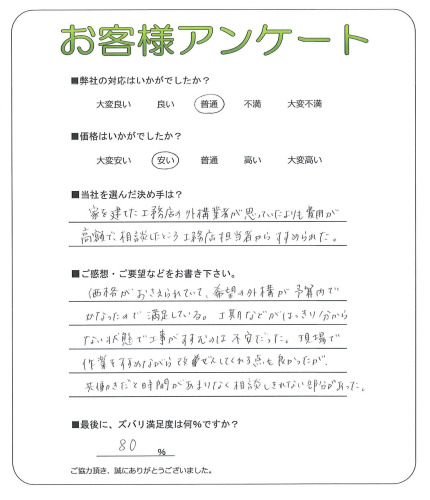 お客様アンケート
■弊社の対応はいかがでしたか？
大変良い 良い 普通 不満 大変不満
■価格はいかがでしたか？
大変安い 安い 普通 高い 大変高い
■当社を選んだ決め手は？
家を建てた工務店の外構業者が思っていたよりも費用が
高額で、相談したところ工務店担当者からすすめられた。
■ご感想・ご要望などをお書き下さい。
価格がおさえられていて、希望の外構が予算内で
かなったので満足している。工期などがはっきり分から
ない状態で工事がすすむのは不安だった。現場で
作業をすすめながら してくれる点も良かったが、
共働きだと時間があまりなく相談しきれない部分があった。
■最後に、ズバリ満足度は何％ですか？
80 ％
ご協力頂き、誠にありがとうございました。